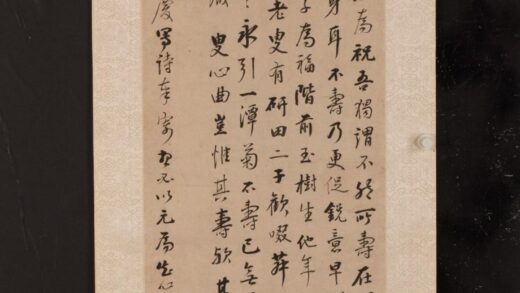 為祝吾獨謂不然所壽在
身耳不壽乃更促銳意早
子為福階前玉樹生他年
老叟有研田二子歡啜菽
永引一潭菊不壽已
叟心曲豈惟其壽
慶寫詩奉寄 不以元為